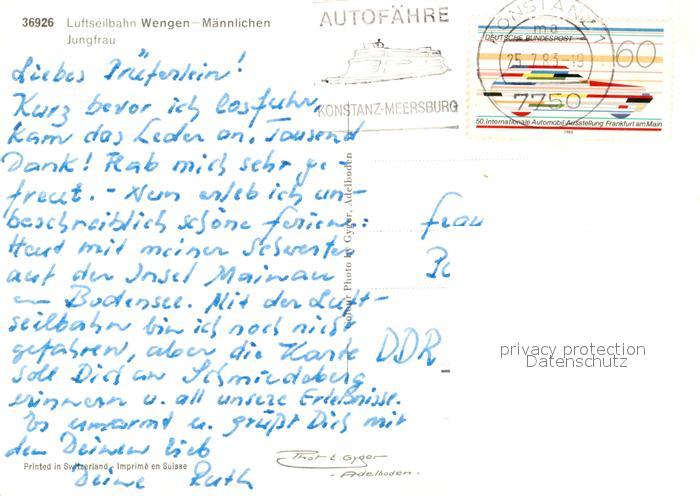 36926 Luftseilbahn Wengen – Männlichen
Jungfrau
Liebes Prüferlein!
Kurz bevor ich losfuhr,
kam das Leder an. Tausend
Dank! Hab mich sehr ge-
freut. – Nun erleb ich un-
beschreiblich schöne Ferien:
Heut mit meiner Schwester
auf der Insel Mainau
im Bodensee. Mit der Luft-
seilbahn bin ich noch nicht
gefahren, aber die Karte
soll Dich an Schmiedeberg
erinnern u. all unsere Erlebnisse.
Es umarmt u. grüßt Dich mit
den Deinen lieb
Deine Ruth
Printed in Switzerland - Imprimé en Suisse
Colour Photo by Gyger, Adelboden
Phot E. Gyger
- Adelboden -
AUTOFÄHRE
KONSTANZ-MEERSBURG
KONSTANZ 1
ma
25.7.83-19
7750
DEUTSCHE BUNDESPOST
60
50. Internationale Automobil-Ausstellung Frankfurt am Main
1983
Frau
DDR
privacy protection
Datenschutz